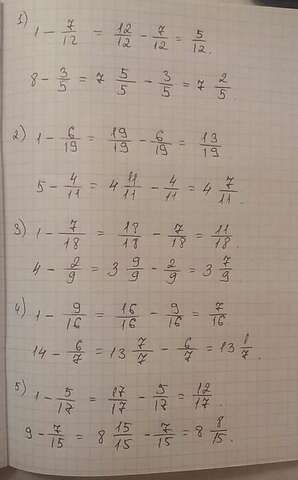 1) 1 - 7/12 = 12/12 - 7/12 = 5/12.
8 - 3/5 = 7 5/5 - 3/5 = 7 2/5.
2) 1 - 6/19 = 19/19 - 6/19 = 13/19
5 - 4/11 = 4 11/11 - 4/11 = 4 7/11.
3) 1 - 7/18 = 18/18 - 7/18 = 11/18
4 - 2/9 = 3 9/9 - 2/9 = 3 7/9
4) 1 - 9/16 = 16/16 - 9/16 = 7/16
14 - 6/7 = 13 7/7 - 6/7 = 13 1/7.
5) 1 - 5/17 = 17/17 - 5/17 = 12/17.
9 - 7/15 = 8 15/15 - 7/15 = 8 8/15.